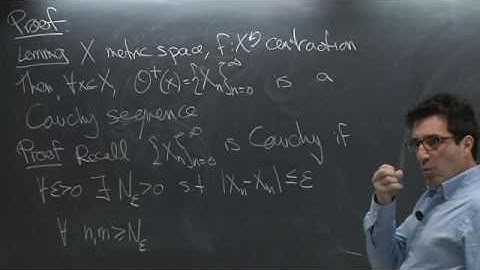 Proof
Lemma X metric space, f:X↺ contraction
Then, ∀x∈X, O⁺(x)={Xₙ}ₙ₌₀^∞ is a
Cauchy sequence
Proof Recall {Xₙ}ₙ₌₀^∞ is Cauchy if
∀ε>0 ∃ N_ε>0 s.t |Xₙ-Xₘ|≤ε
∀ n,m≥N_ε